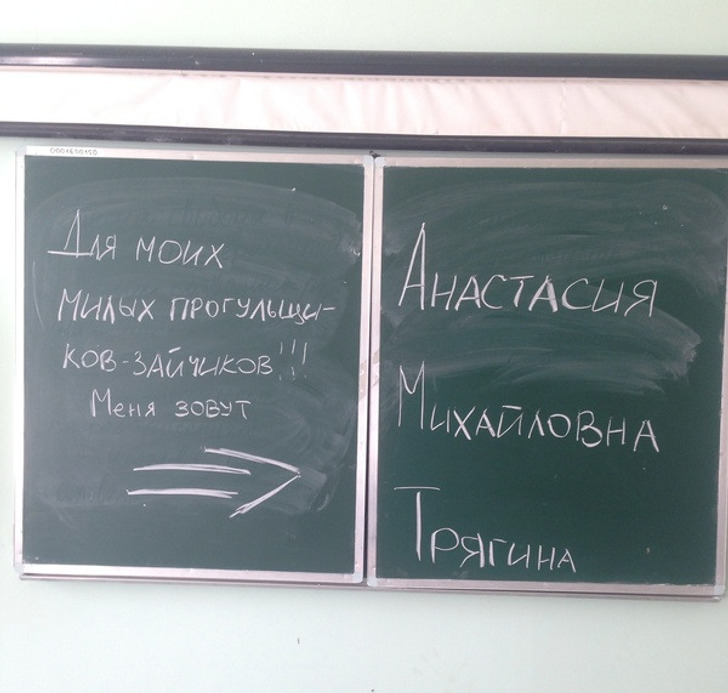 0001600150
Для моих
милых прогульщи-
ков-зайчиков!!!
Меня зовут
Анастасия
Михайловна
Трягина